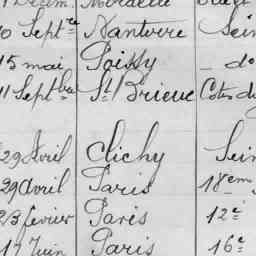 0 Septre Nanterre Sein
15 mai Poissy - do
11 Septbre St Brieuc Cotes du
29 Avril Clichy Sein
29 avril Paris 18em
23 fevrier Paris 12e
17 Juin Paris 16e